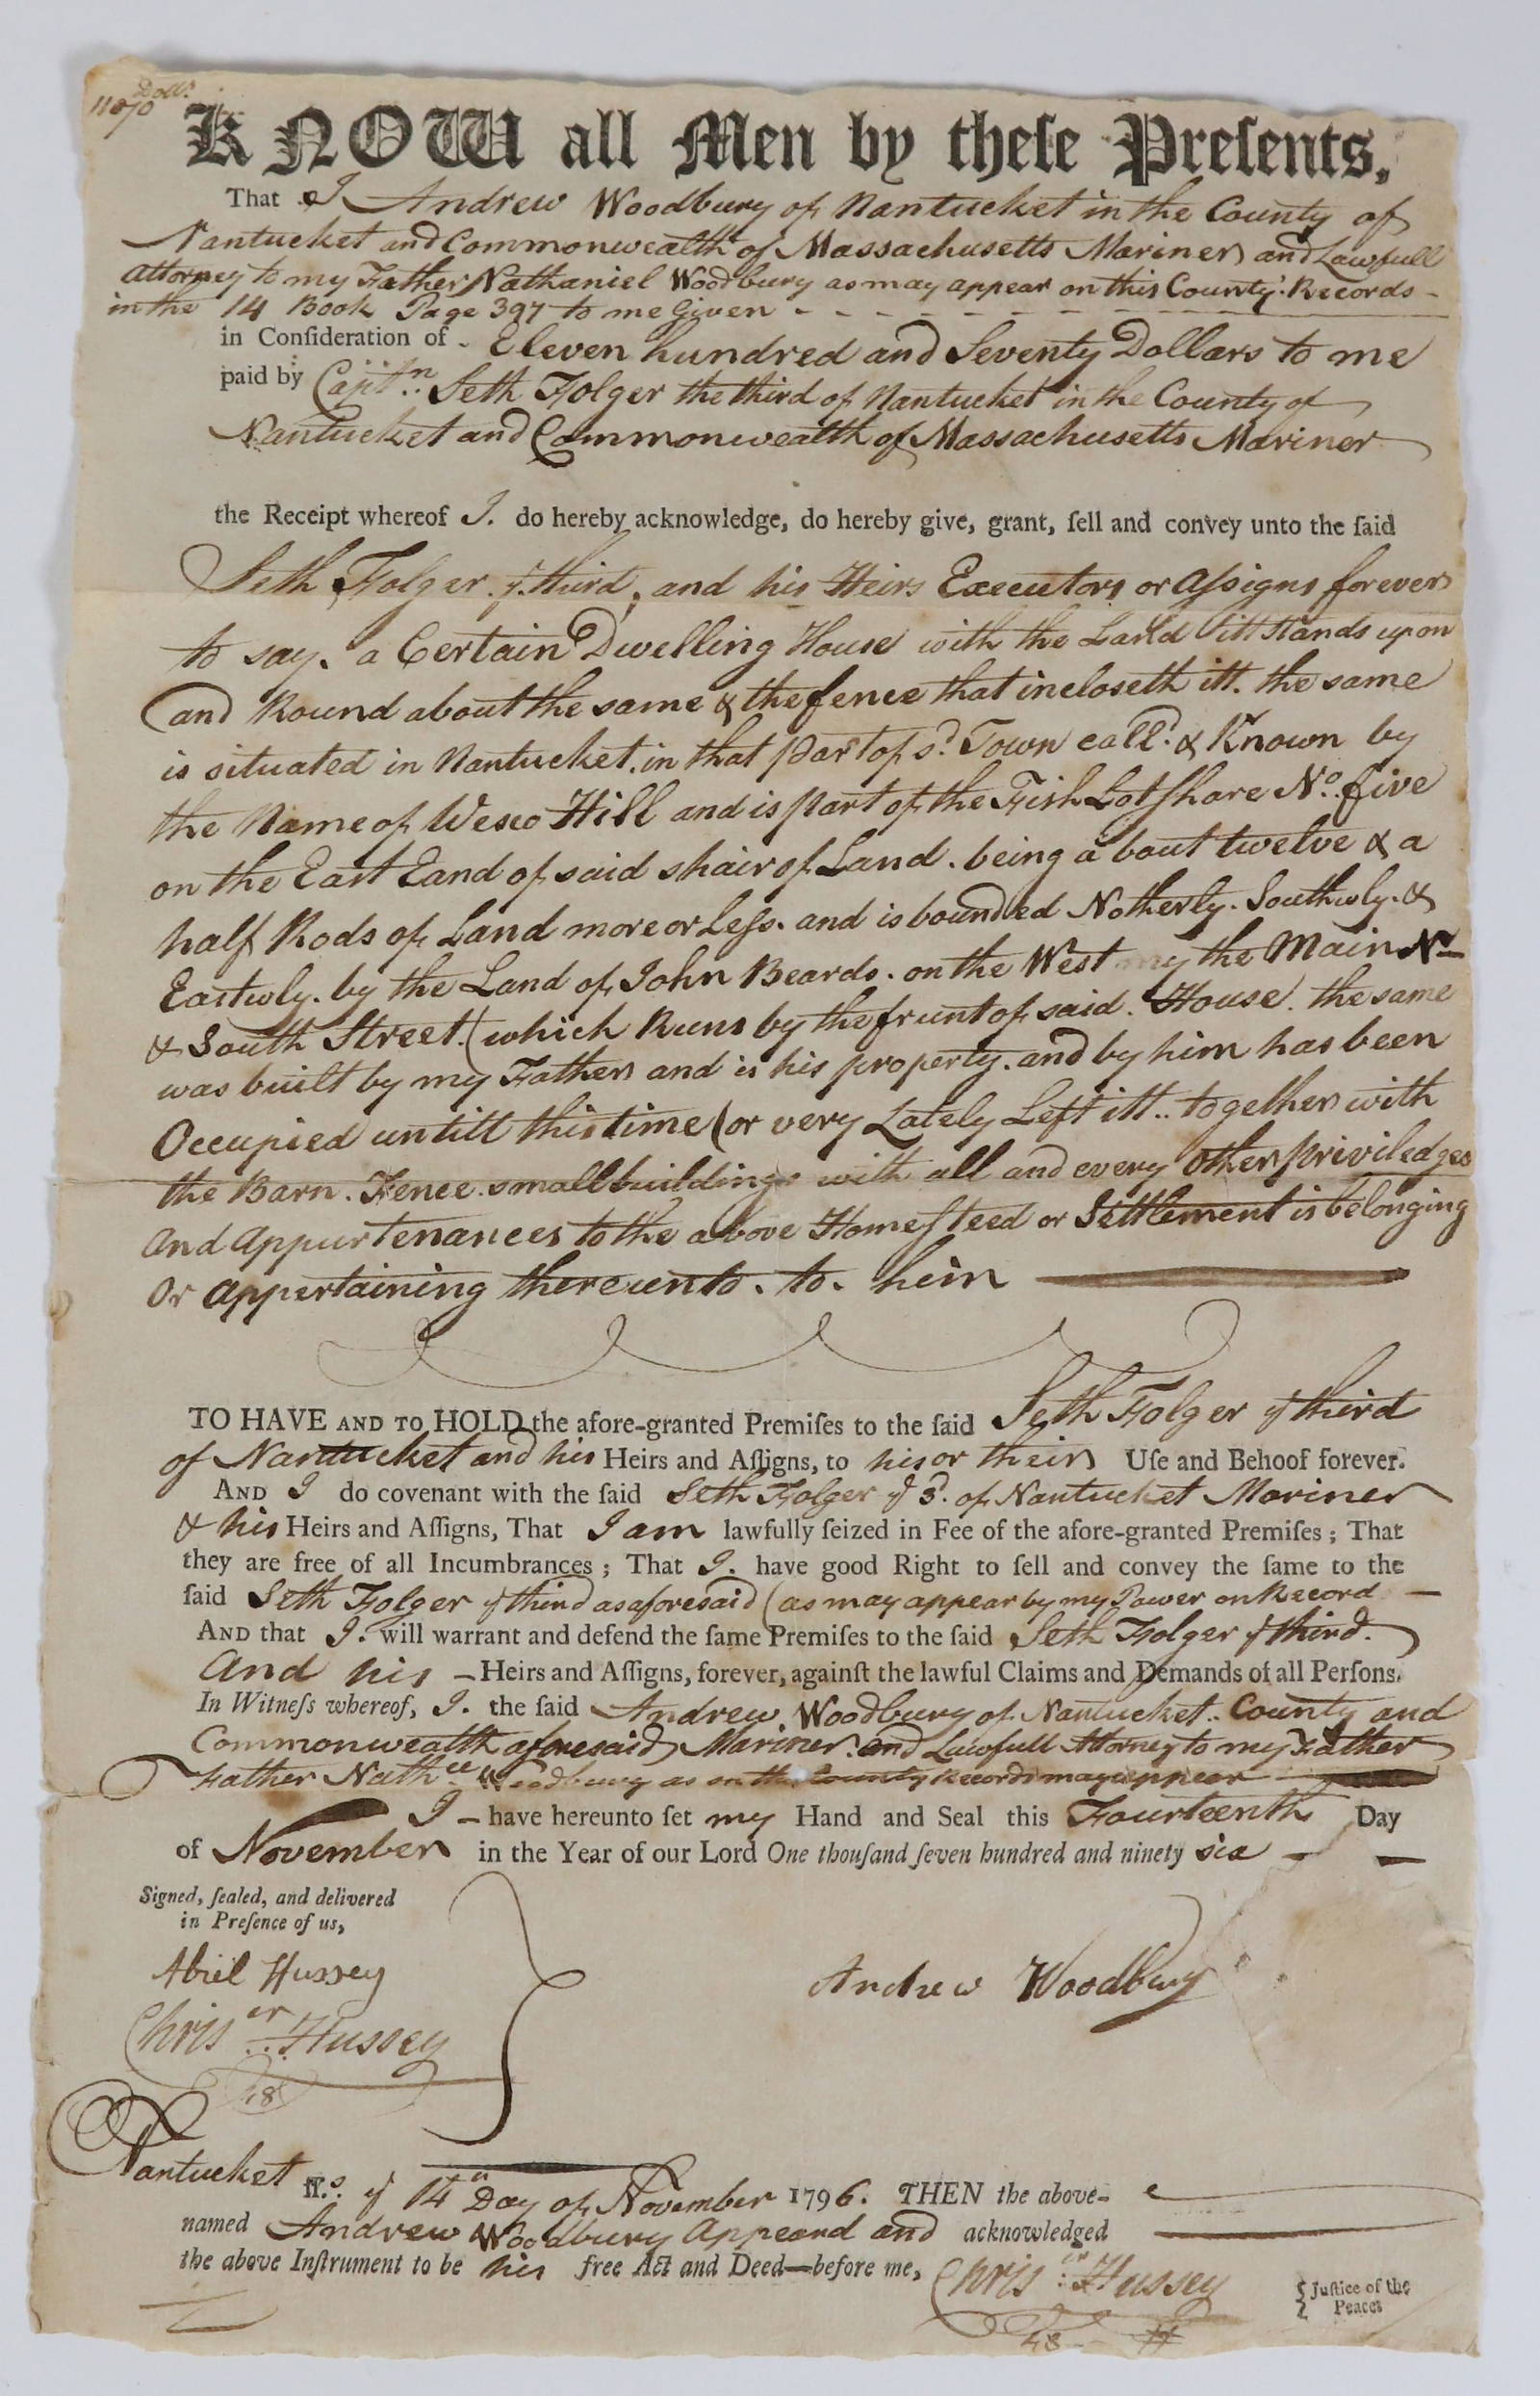 1170 Dolls.
KNOW all Men by theſe Preſents,
That I Andrew Woodbury of Nantucket in the County of
Nantucket and Commonwealth of Massachusetts Mariner and Lawfull
attorney to my Father Nathaniel Woodbury as may appear on this County Records -
in the 14 Book Page 397 to me Given - - - - - -
in Conſideration of - Eleven hundred and Seventy Dollars to me
paid by Captn. Seth Folger the third of Nantucket in the County of
Nantucket and Commonwealth of Massachusetts Mariner
the Receipt whereof I. do hereby acknowledge, do hereby give, grant, ſell and convey unto the ſaid
Seth Folger ye. third, and his Heirs Executors or Aſsigns forever
to say. a Certain Dwelling House with the Land itt stands upon
and Round about the same & the fence that incloseth itt. the same
is situated in Nantucket. in that part of sd. Town calld. & Known by
the Name of Wesco Hill and is part of the Fish Lot Share No. five
on the East Eand of said shair of Land. being about twelve & a
half Rods of Land more or Leſs. and is bounded Notherly. Southerly. &
Easterly. by the Land of John Beards. on the West by the Main N-
& South Street. (which Runs by the frunt of said House. the same
was built by my Father and is his property. and by him has been
Occupied untill this time (or very Lately Left itt.. together with
the Barn. Fence. small buildings with all and every other priviledges
And appurtenances to the above Homesteed or Settlement is belonging
Or appertaining thereunto. to. him
TO HAVE AND TO HOLD the afore-granted Premiſes to the ſaid Seth Folger ye third
of Nantucket and his Heirs and Aſſigns, to his or their Uſe and Behoof forever.
AND I do covenant with the ſaid Seth Folger ye 3d. of Nantucket Mariner
& his Heirs and Aſſigns, That I am lawfully ſeized in Fee of the afore-granted Premiſes; That
they are free of all Incumbrances; That I. have good Right to ſell and convey the ſame to the
ſaid Seth Folger ye third as aforesaid (as may appear by my Power on Record -
AND that I. will warrant and defend the ſame Premiſes to the ſaid Seth Folger ye third.
And his - Heirs and Aſſigns, forever, againſt the lawful Claims and Demands of all Perſons.
In Witneſs whereof, I. the ſaid Andrew Woodbury of Nantucket.. County and
Commonwealth aforesaid, Mariner. and Lawfull Attorney to my Father
Father Nathll. Woodbury as on the County Records may appear
I - have hereunto ſet my Hand and Seal this Fourteenth Day
of November in the Year of our Lord One thouſand ſeven hundred and ninety six -
Signed, ſealed, and delivered
in Preſence of us,
Abiel Hussey
Andrew Woodbury
Chriser. Hussey
48
Nantucket ſſ.s. ye 14th Day of November 1796. THEN the above-
named Andrew Woodbury Appeard and acknowledged
the above Inſtrument to be his free Act and Deed—before me, Chriser. Hussey
Juſtice of the
Peace
48